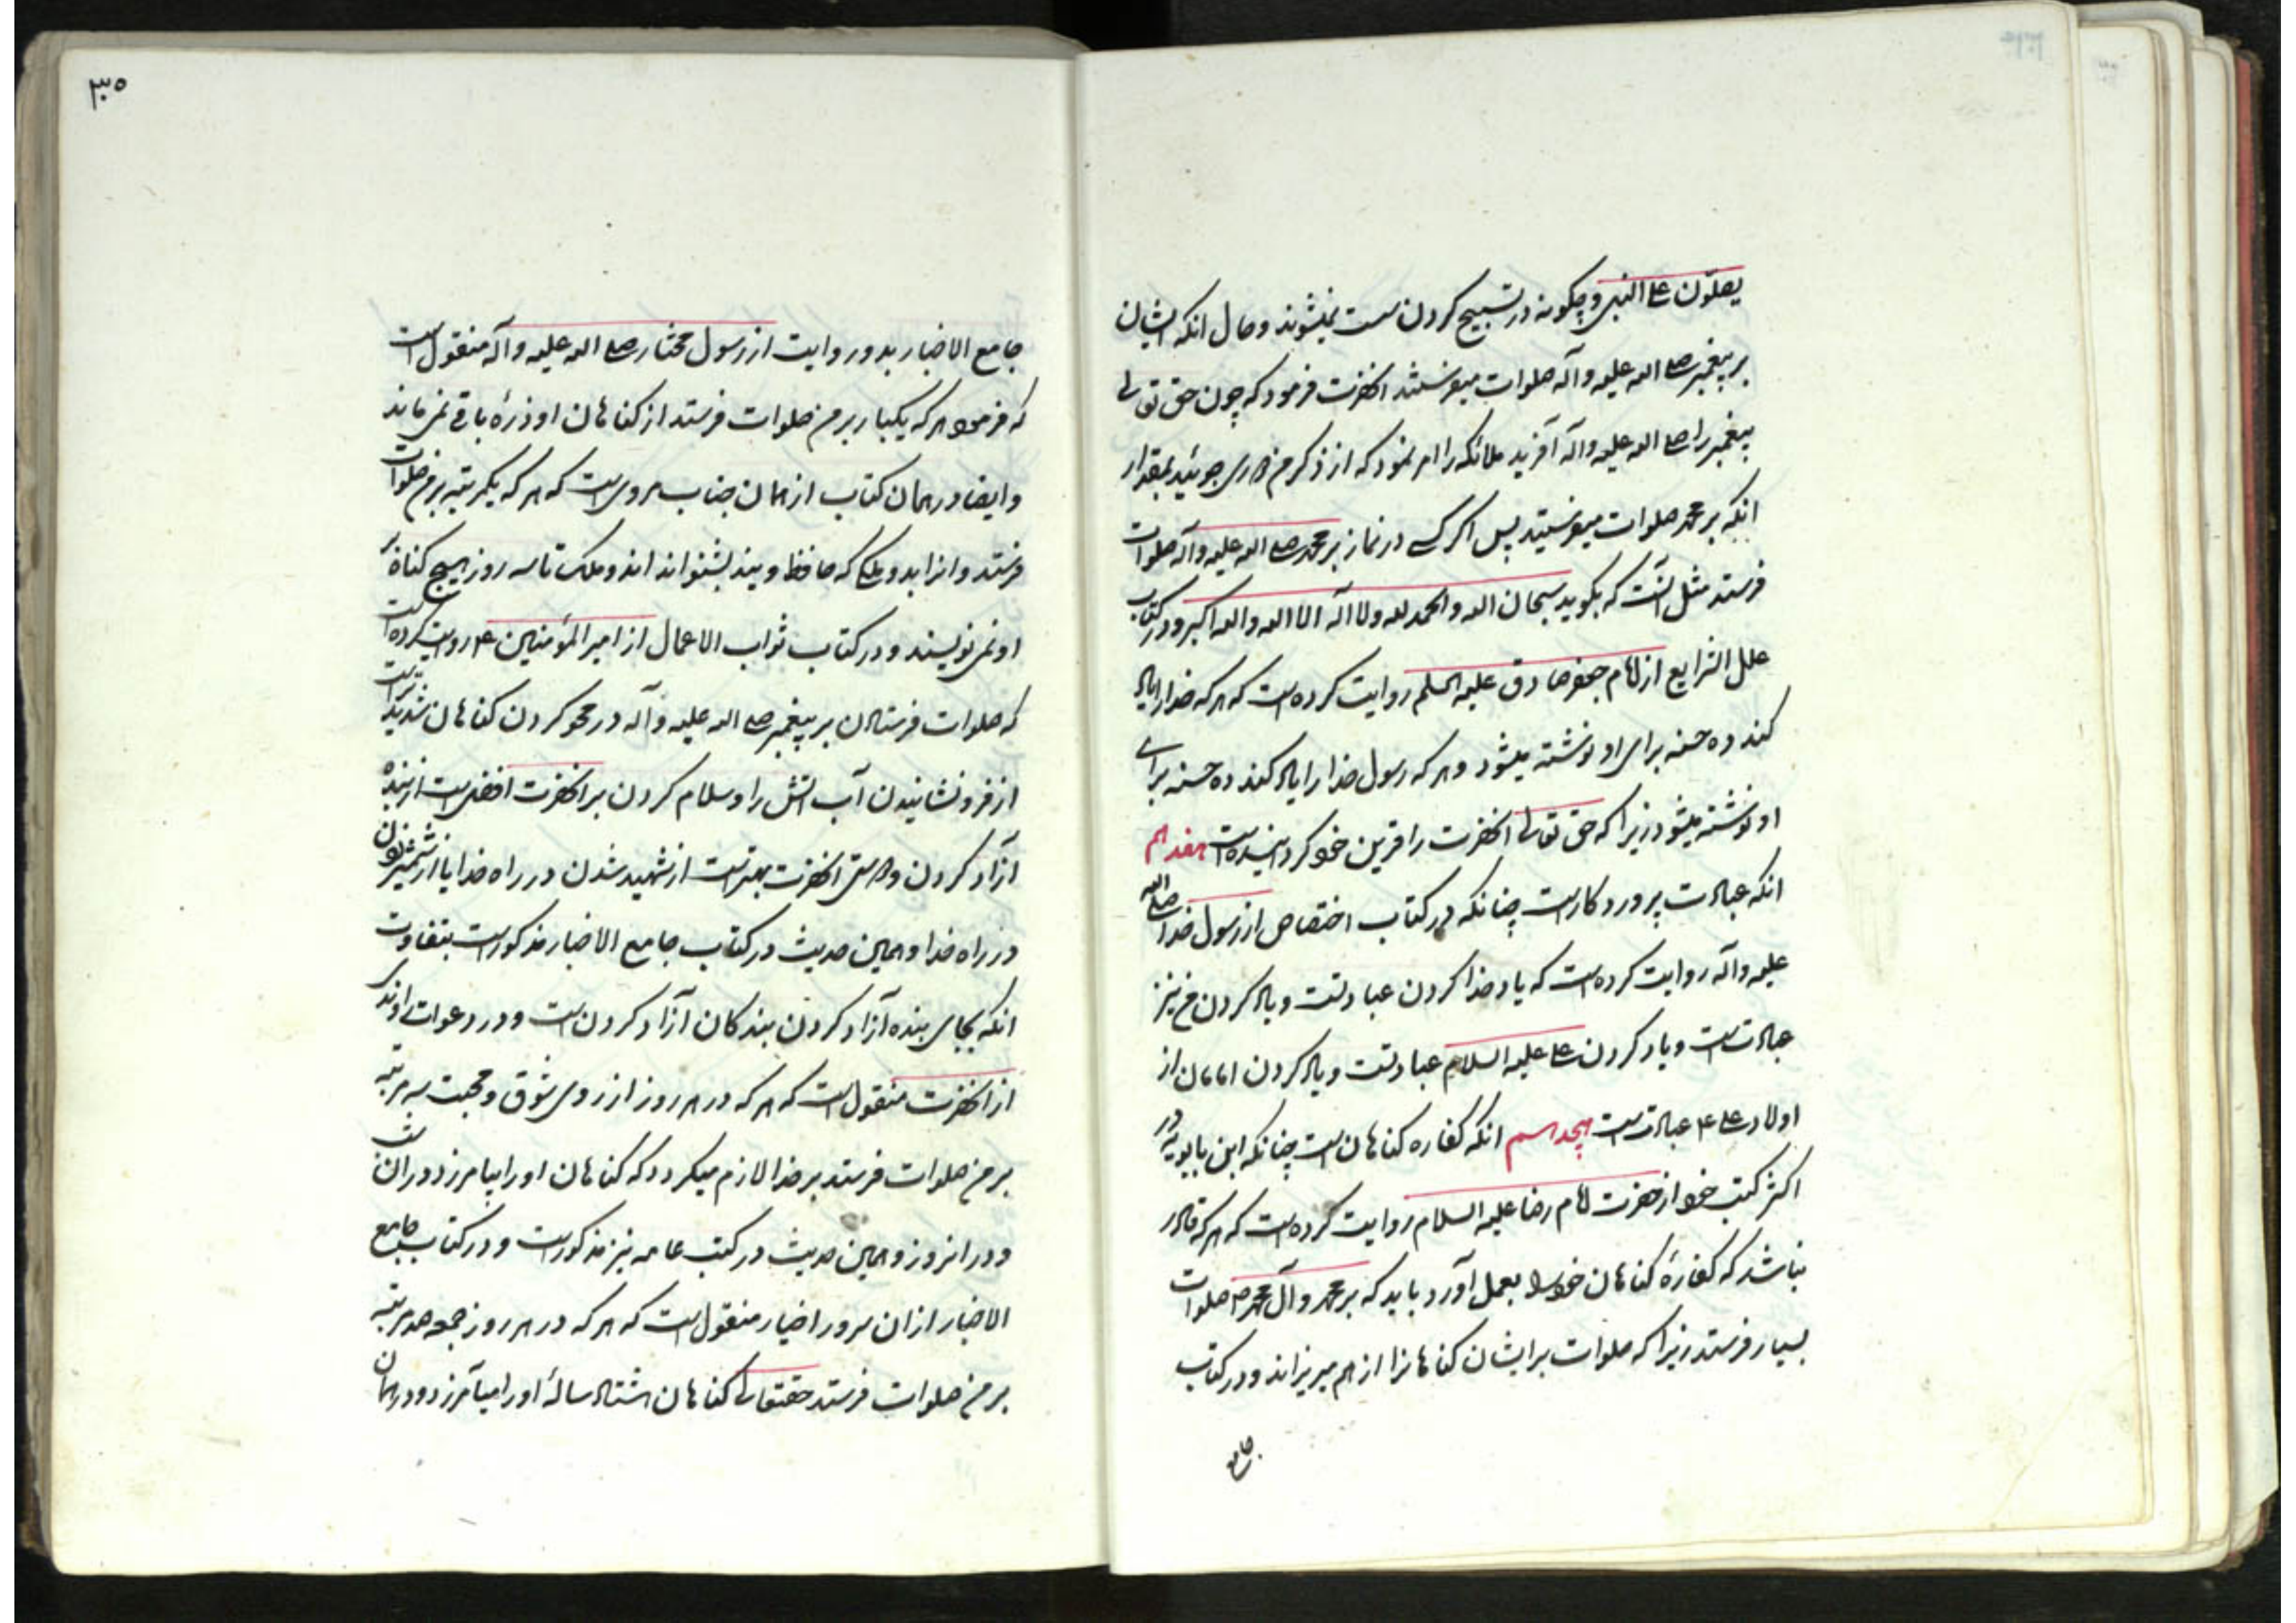 یصلّون علی النبی و چکونه در تسبیح کردن سست نمیشوند و حال انکه ایشان
بر پیغمبر صلی الله علیه و آله صلوات میفرستند انحضرت فرمود که چون حق تعالی
پیغمبر را صلی الله علیه و آله آفرید ملائکه را امر نمود که از ذکر من دوری جوئید بمقدار
انکه بر محمد صلوات میفرستید پس اکر کسی در نماز بر محمد صلی الله علیه و آله صلوات
فرستد مثل آنست که بکوید سبحان الله و الحمد لله و لا اله الا الله و الله اکبر و در کتاب
علل الشرایع از امام جعفر صادق علیه السلم روایت کرده است که هر که خدا را یاد
کند ده حسنه برای او نوشته میشود و هر که رسول خدا را یاد کند ده حسنه برای
او نوشته میشود زیرا که حق تعالی انحضرت را قرین خود کردانیده است هفدهم
انکه عبادت پروردکار است چنانکه در کتاب اختصاص از رسول خدا صلی الله
علیه و آله روایت کرده است که یاد خدا کردن عبادتست و یاد کردن من نیز
عبادت است و یاد کردن علی علیه السلام عبادتست و یاد کردن امامان از
اولاد علی ۴ عبادت است هیجدهم انکه کفاره کناهان است چنانکه ابن بابویه در
اکثر کتب خود از حضرت امام رضا علیه السلام روایت کرده است که هر که قادر
نباشد که کفارهٔ کناهان خود را بعمل آورد باید که بر محمد و آل محمد ص صلوات
بسیار فرستد زیرا که صلوات بر ایشان کناهانرا از هم میریزاند و در کتاب
جامع
۳۰۵
جامع الاخبار بدو روایت از رسول مختار صلی الله علیه و آله منقول است
که فرمود هر که یکبار بر من صلوات فرستد از کناهان او ذرهٔ باقی نمی ماند
و ایضا در همان کتاب از همان جناب مروی است که هر که یکمرتبه بر من صلوات
فرستد و انرا بدو ملکی که حافظ ویند بشنواند اندو ملک تا سه روز هیچ کناه بر
او نمی نویسند و در کتاب ثواب الاعمال از امیر المؤمنین ۴ روایت کرده است
که صلوات فرستادن بر پیغمبر صلی الله علیه و آله در محو کردن کناهان شدیدتر است
از فرو نشانیدن آب اتش را و سلام کردن بر انحضرت افضل است از بنده
آزاد کردن و دوستی انحضرت بهتر است از شهید شدن در راه خدا یا از شمشیر زدن
در راه خدا و همین حدیث در کتاب جامع الاخبار مذکور است بتفاوت
انکه بجای بنده آزاد کردن بندکان آزاد کردن است و در دعوات راوندی
از انحضرت منقول است که هر که در هر روز از روی شوق و محبت سه مرتبه
بر من صلوات فرستد بر خدا لازم میکردد که کناهان او را بیامرزد در ان شب
و در انروز و همین حدیث در کتب عامه نیز مذکور است و در کتاب جامع
الاخبار از ان سرور اخیار منقول است که هر که در هر روز جمعه صد مرتبه
بر من صلوات فرستد حقتعالی کناهان هشتاد سالهٔ او را میآمرزد و در همان